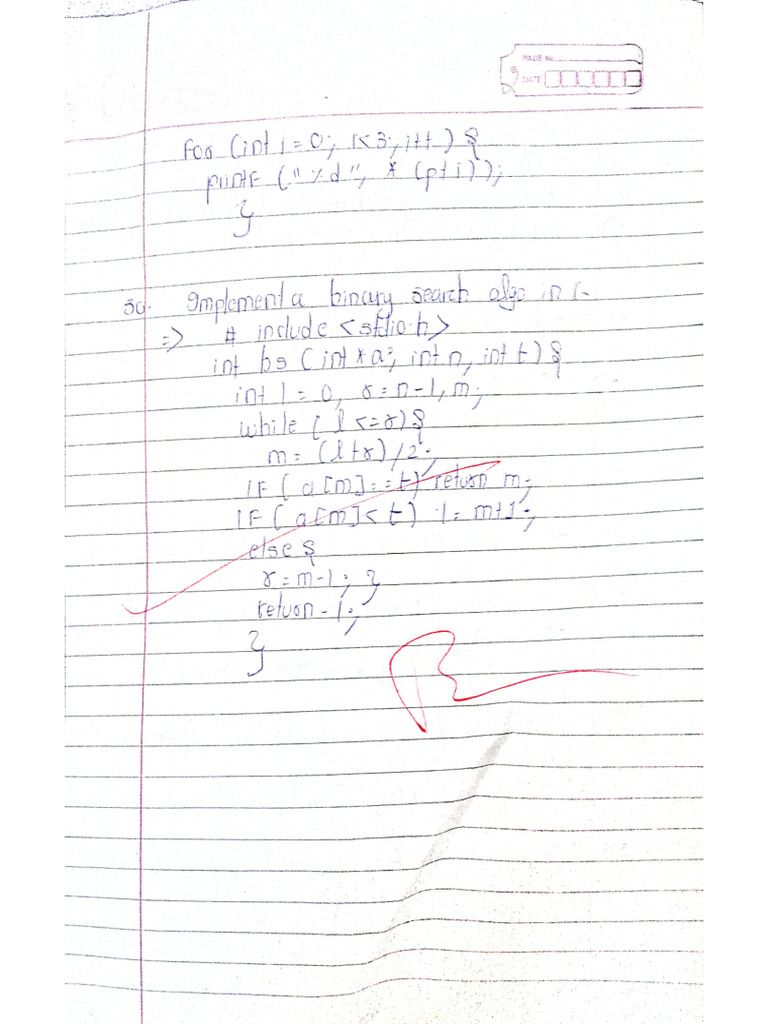 PAGE No.
DATE
for (int i = 0; i<3; i++) {
printf ("%d", * (p+i));
}
30. Implement a binary search algo in C.
=> # include <stdio.h>
int bs (int *a, int n, int t) {
int l = 0, r = n-1, m;
while ( l <= r) {
m = (l+r) /2;
if ( a[m] == t) return m;
if ( a[m] < t) l = m+1;
else {
r = m-1; }
return -1;
}